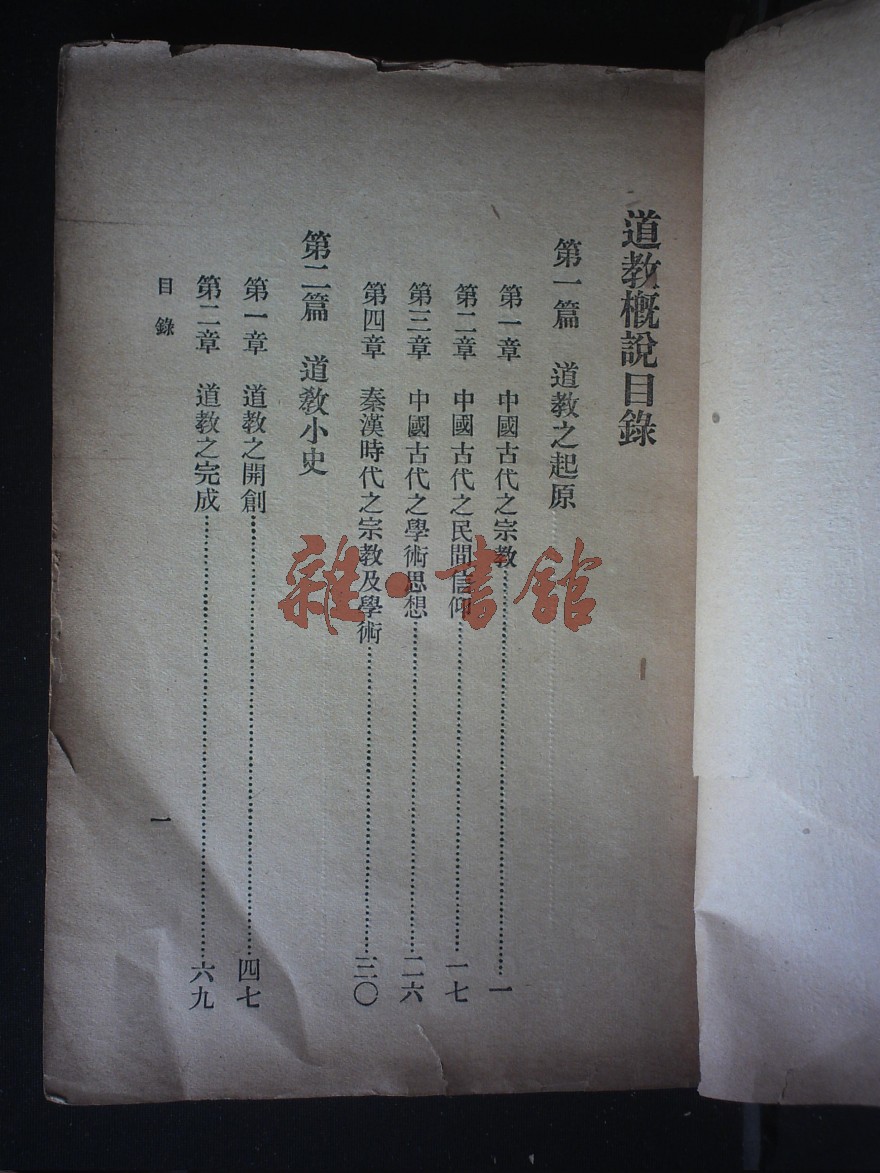 道教概說目錄
第一篇 道教之起原
第一章 中國古代之宗教……一
第二章 中國古代之民間信仰……一七
第三章 中國古代之學術思想……二六
第四章 秦漢時代之宗教及學術……三〇
第二篇 道教小史
第一章 道教之開創……四七
第二章 道教之完成……六九
目錄
一
雜·書館